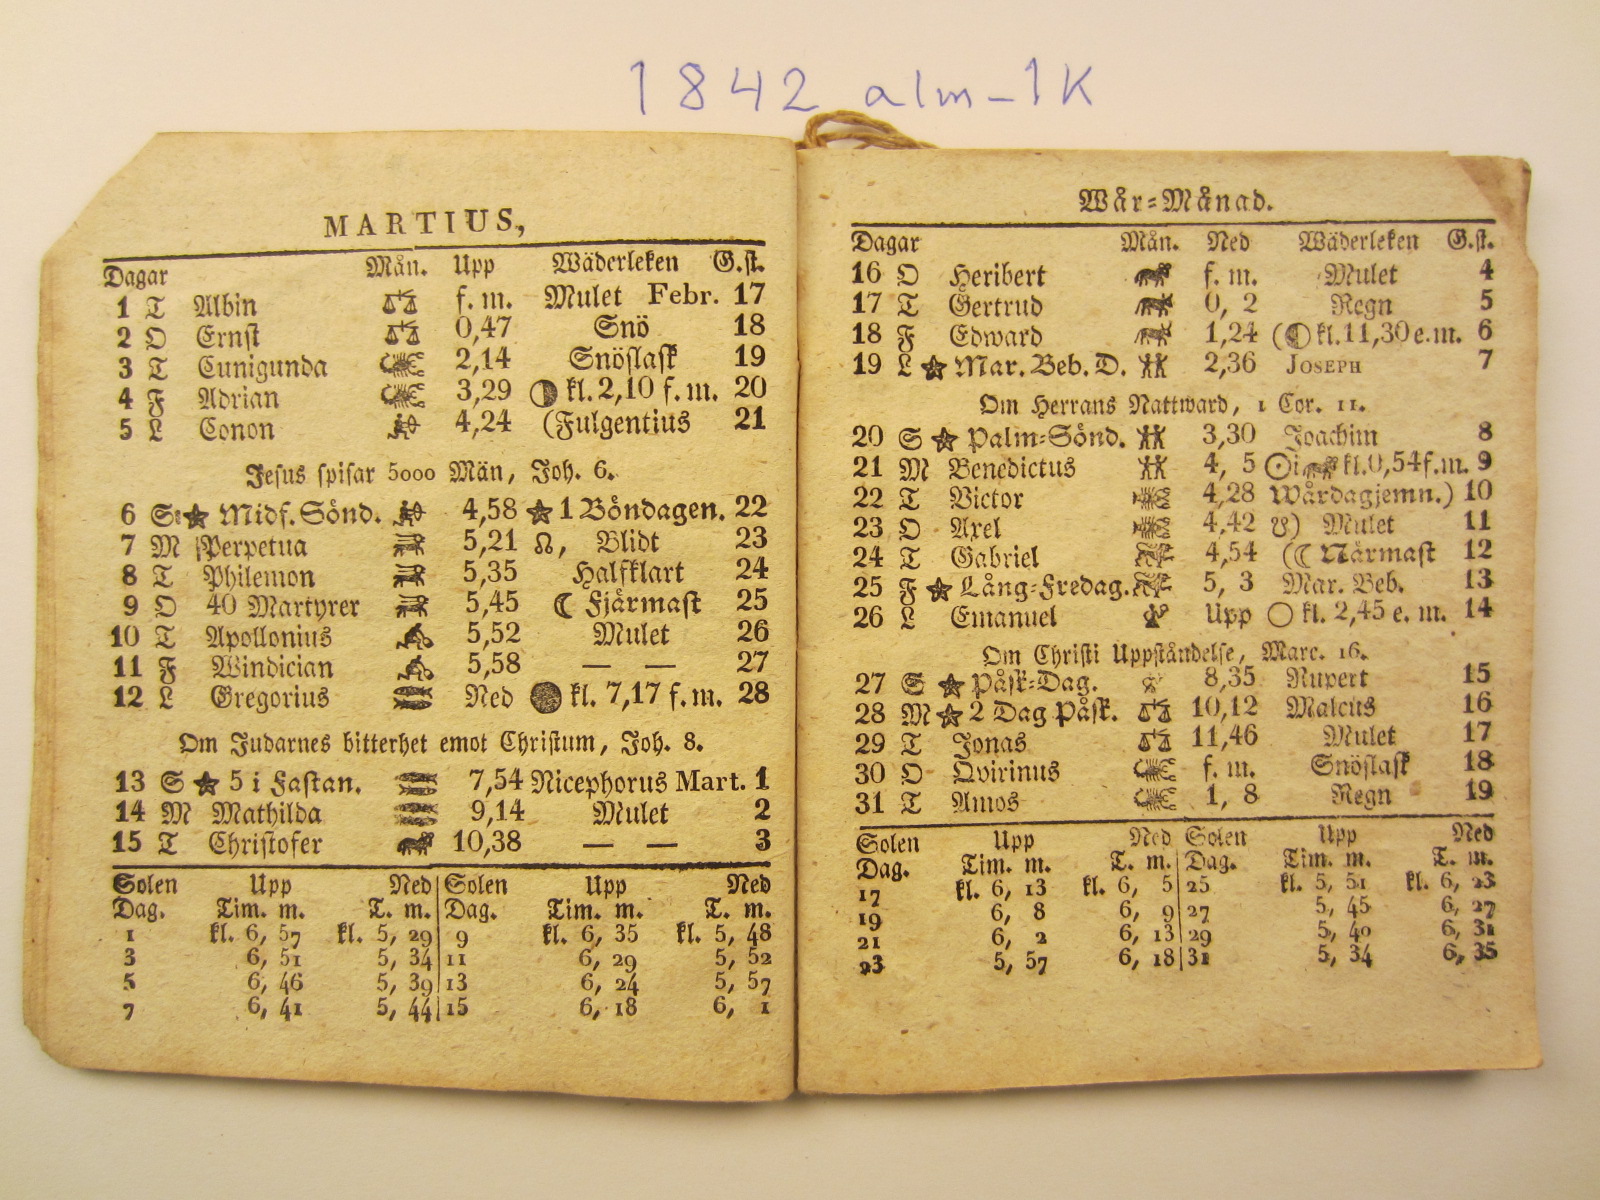 1842 alm-1K
MARTIUS,
Dagar Mån. Upp Wäderleken G.st.
1 T Albin f. m. Mulet Febr. 17
2 O Ernst 0,47 Snö 18
3 T Cunigunda 2,14 Snöslask 19
4 F Adrian 3,29 kl. 2,10 f. m. 20
5 L Conon 4,24 (Fulgentius 21
Jesus spisar 5000 Män, Joh. 6.
6 S Midf. Sönd. 4,58 1 Böndagen. 22
7 M Perpetua 5,21 ☊, Blidt 23
8 T Philemon 5,35 Halfklart 24
9 O 40 Martyrer 5,45 ☾ Fjärmast 25
10 T Apollonius 5,52 Mulet 26
11 F Windician 5,58 — — 27
12 L Gregorius Ned kl. 7,17 f. m. 28
Om Judarnes bitterhet emot Christum, Joh. 8.
13 S 5 i Fastan. 7,54 Nicephorus Mart. 1
14 M Mathilda 9,14 Mulet 2
15 T Christofer 10,38 — — 3
Solen Upp Ned Solen Upp Ned
Dag. Tim. m. T. m. Dag. Tim. m. T. m.
1 kl. 6, 57 kl. 5, 29 9 kl. 6, 35 kl. 5, 48
3 6, 51 5, 34 11 6, 29 5, 52
5 6, 46 5, 39 13 6, 24 5, 57
7 6, 41 5, 44 15 6, 18 6, 1
Wår=Månad.
Dagar Mån. Ned Wäderleken G.st.
16 O Heribert f. m. Mulet 4
17 T Gertrud 0, 2 Regn 5
18 F Edward 1,24 ( kl. 11,30 e. m. 6
19 L Mar. Beb. D. 2,36 JOSEPH 7
Om Herrans Nattward, 1 Cor. 11.
20 S Palm=Sönd. 3,30 Joachim 8
21 M Benedictus 4, 5 ☉ i kl. 0,54 f. m. 9
22 T Victor 4,28 Wårdagjemn.) 10
23 O Axel 4,42 ☋) Mulet 11
24 T Gabriel 4,54 (☾ Närmast 12
25 F Lång=Fredag. 5, 3 Mar. Beb. 13
26 L Emanuel Upp ○ kl. 2,45 e. m. 14
Om Christi Uppståndelse, Marc. 16.
27 S Påsk=Dag. 8,35 Rupert 15
28 M 2 Dag Påsk. 10,12 Malcus 16
29 T Jonas 11,46 Mulet 17
30 O Qvirinus f. m. Snöslask 18
31 T Amos 1, 8 Regn 19
Solen Upp Ned Solen Upp Ned
Dag. Tim. m. T. m. Dag. Tim. m. T. m.
17 kl. 6, 13 kl. 6, 5 25 kl. 5, 51 kl. 6, 23
19 6, 8 6, 9 27 5, 45 6, 27
21 6, 2 6, 13 29 5, 40 6, 31
23 5, 57 6, 18 31 5, 34 6, 35